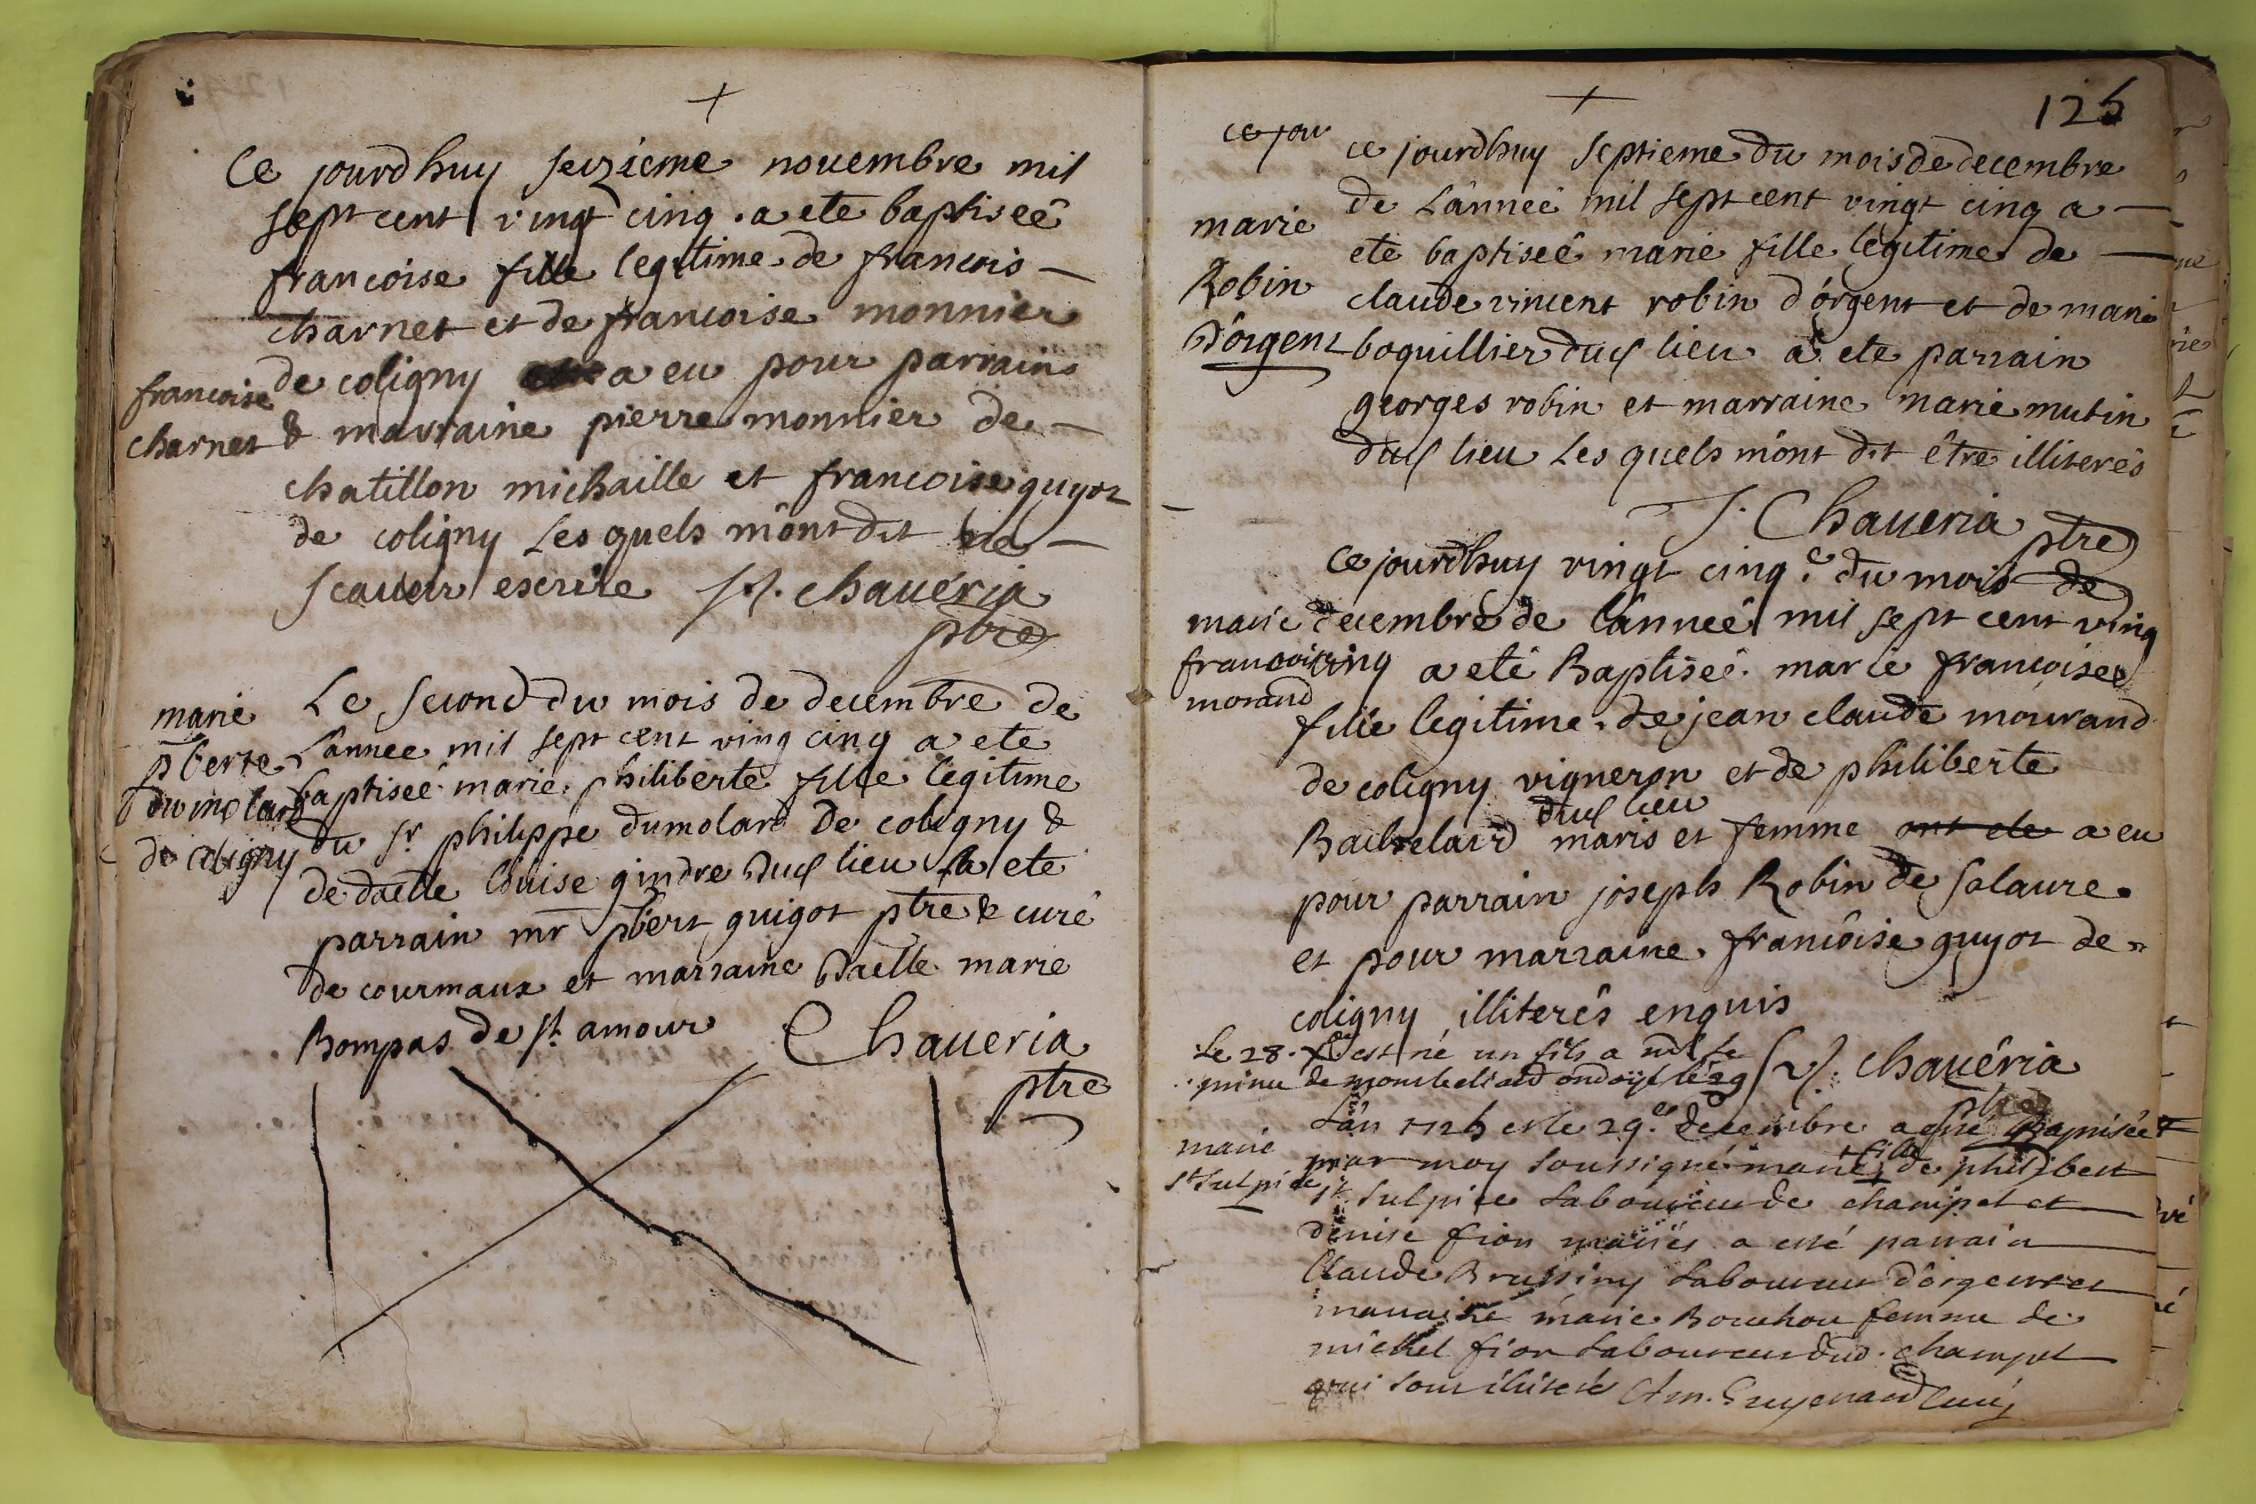 +
Ce jourdhuy seizieme nouembre mil
sept cent vingt cinq . a ete baptiseé
francoise fille legitime de francois —
charnet et de francoise monnier
de coligny a eu pour parrain
francoise
charnet
& marraine pierre monnier de —
chatillon michaille et francoise guyot
de coligny Les quels m'ont dit ne —
scauoir escrire . chaueria
ptre
Le second du mois de decembre de
L'annee mil sept cent ving cinq a ete
baptiseé marie philiberte fille legitime
du Sr philippe dumolard De coligny &
de dælle Louise gindre dud lieu a ete
parrain mr pbert guigot ptre & curé
de courmaux et marraine dælle marie
Bompas de St amour Chaueria
ptre
marie
pberte
dumolard
de coligny
+
125
ce jour
ce jourdhuy septieme du mois de decembre
de L'anneé mil sept cent vingt cinq a —
ete baptiseé marie fille legitime de —
claude vincent robin d'orgent et de marie
boquillier dud lieu a ete parrain
georges robin et marraine marie mutin
dud lieu Les quels m'ont dit être illiterés
marie
Robin
D'orgent
J. Chaueria ptre
Ce jourdhuy vingt cinq.e du mois de
decembre de l'anneé mil sept cent ving
cinq a eté Baptiseé marie francoise
fille legitime de jean claude mourand
de coligny vigneron et de philiberte
dud lieu
Bachelard maris et femme ont ete a eu
pour parrain joseph Robin de salaure
et pour marraine francoise guyot de
coligny illiterés enquis
marie
francoise
morand
chaueria
ptre
Le 28. est né un fils a
de mombeliard ondoyé le 29
L'an 1725 et le 29.e decembre a esté Baptisée
par moy soussigné marie fille de philibert
St Sulpice Laboureur de champel et
denise fion mariés a esté parrain
Claude Brussiny Laboureur d'orgent et
marraine marie Bouchou femme de
michel fion Laboureur dud. champel
qui sont illiteré curé
marie
St Sulpice